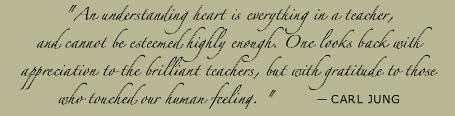 "An understanding heart is everything in a teacher,
and cannot be esteemed highly enough. One looks back with
appreciation to the brilliant teachers, but with gratitude to those
who touched our human feeling. " — CARL JUNG